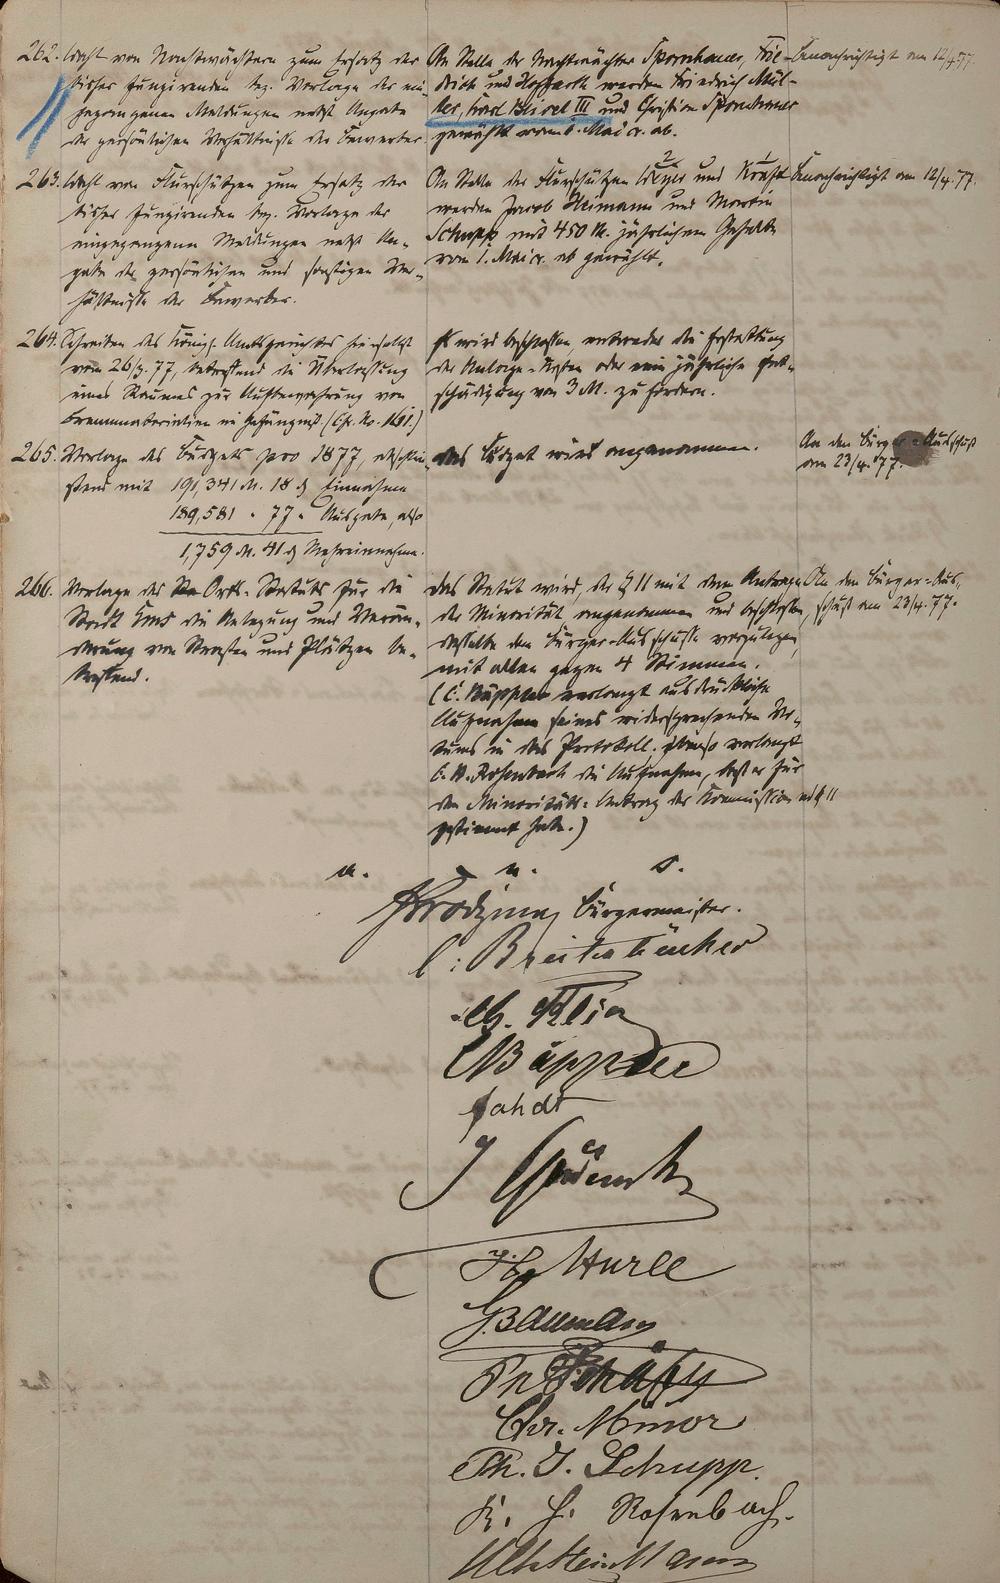 262. Wahl von Nachtwächtern zum Ersatz der
bisher fungirenden bez. Vorlage der ein-
gegangenen Meldungen nebst Angabe
der persönlichen Verhältnisse der Bewerber.
An Stelle der Nachtwächter Spornhauer, Frie-
drich und werden Friedrich Mül-
ler, Karl Beisel III und Christian Spornhauer
gewählt vom 1. Mai cr. ab.
Benachrichtigt am 12/4.77.
263. Wahl von Flurschützen zum Ersatz der
bisher fungirenden bez. Vorlage der
eingegangenen Meldungen nebst An-
gabe der persönlichen und sonstigen Ver-
hältnisse der Bewerber.
An Stelle der Flurschützen und Kraft
werden Jacob Heimann und Martin
Schupp mit 450 M. jährlichem Gehalte
vom 1. Mai cr. ab gewählt.
Benachrichtigt am 12/4.77.
264. Schreiben des Königl. Amtsgerichtes hierselbst
vom 26/3.77, betreffend die Überlassung
eines Raumes zur Aufbewahrung von
Brennmaterialien im Gefängniß (Chr. No. 1691.)
Es wird beschlossen entweder die Erstattung
der Anlage-Kosten oder eine jährliche Ent-
schädigung von 3 M. zu fordern.
265. Vorlage des Budgets pro 1877, abschlie-
ßend mit 191,341 M. 18 ₰ Einnahme
189,581 " 77 " Ausgabe, also
1,759 M. 41 ₰ Mehreinnahme.
das Budget wird angenommen.
An den Bürger-Ausschuß
am 23/4.77.
266. Vorlage des Orts-Statuts für die
Stadt Ems die Anlegung und Verän-
derung von Straßen und Plätzen be-
treffend.
das Statut wird, der § 11 mit dem Antrage
der Minorität angenommen und beschlossen,
dasselbe dem Bürger-Ausschusse vorzulegen,
mit allen gegen 4 Stimmen.
(C. Büppler verlangt ausdrückliche
Aufnahme seines widersprechenden Vo-
tums in das Protokoll. Ebenso verlangt
C. H. Rosenbach die Aufnahme, daß er für
den Minoritäts-Antrag der Kommission ad § 11
gestimmt habe.)
An den Bürger-Aus-
schuß am 23/4.77.
a. u. s.
Bürgermeister.
Klein
Büppler
Fahdt
J
Hurle
G. Baumann
Ph Schäfer
Chr. Minor
Ph. J. Schupp.
K. H. Rosenbach.